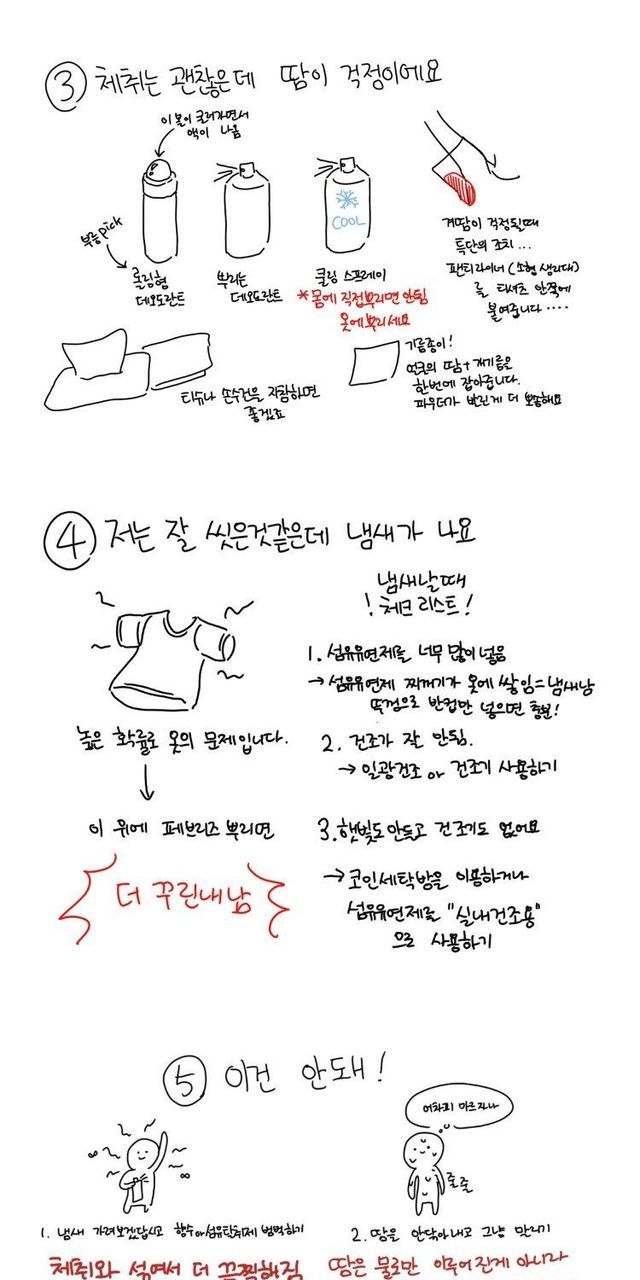 ③ 체취는 괜찮은데 땀이 걱정이에요
이 볼이 굴러가면서
액이 나옴
복숭pick
롤링형
데오도란트
뿌리는
데오도란트
COOL
쿨링 스프레이
*몸에 직접뿌리면 안됨
옷에뿌리세요
겨땀이 걱정될때
특단의 조치...
팬티라이너(소형생리대)
를 티셔츠 안쪽에
붙여줍니다....
티슈나 손수건을 지참하면
좋겠죠
기름종이!
여러분의 땀+개기름은
한번에 잡아줍니다.
파우더가 발린게 더 뽀송해요
④ 저는 잘 씻은것같은데 냄새가 나요
높은 확률로 옷의 문제입니다.
이 위에 페브리즈 뿌리면
더 꾸린내남
냄새날때
!체크리스트!
1. 섬유유연제를 너무 많이 넣음
→ 섬유유연제 찌꺼기가 옷에 쌓임=냄새남
뚜껑으로 반컵만 넣으면 충분!
2. 건조가 잘 안됨.
→ 일광건조 or 건조기 사용하기
3. 햇빛도 안들고 건조기도 없어요
→ 코인세탁방을 이용하거나
섬유유연제를 "실내건조용"
으로 사용하기
⑤ 이건 안돼!
어차피 마르자나
줄줄
1. 냄새 가려보겠답시고 향수or섬유탈취제 범벅하기
체취와 섞여서 더 끔찍해짐
2. 땀을 안닦아내고 그냥 말리기
땀은 물로만 이루어진게 아니라